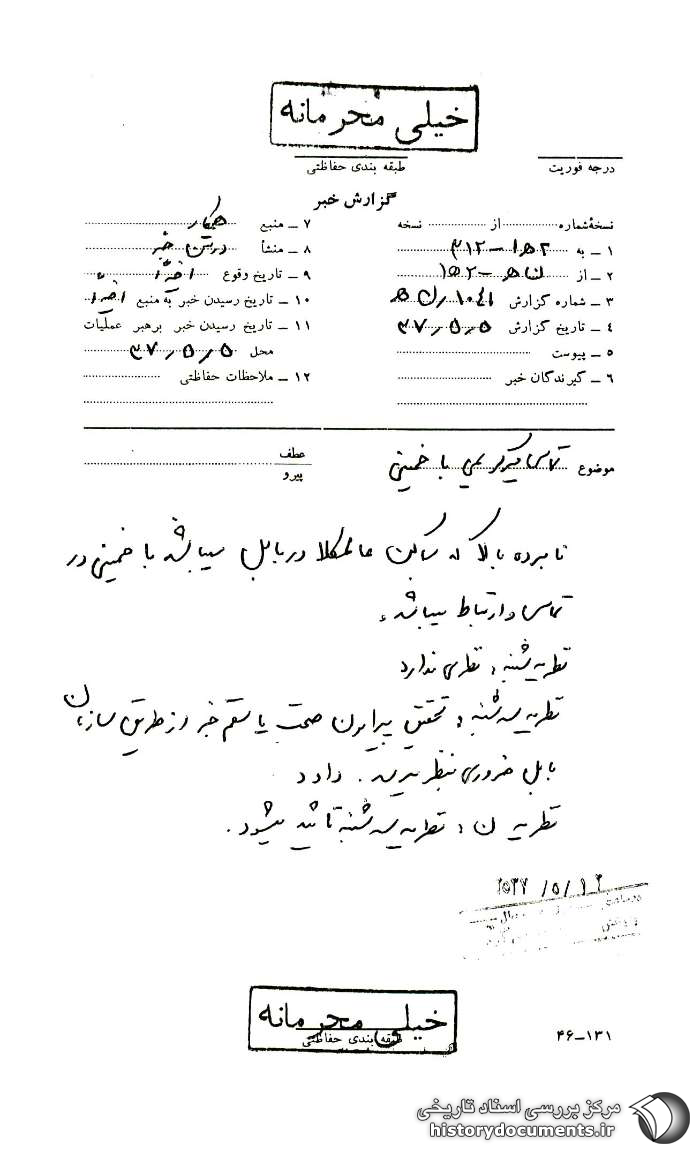 خیلی محرمانه
درجه فوریت
طبقه بندی حفاظتی
گزارش خبر
نسخهٔ شماره از نسخه
۱ ـ به ۳۱۲
۲ ـ از
۳ ـ شماره گزارش ۱۰۴۱
۴ ـ تاریخ گزارش ۳۷٫۵٫۵
۵ ـ پیوست
۶ ـ گیرندگان خبر
۷ ـ منبع همکار
۸ ـ منشأ
۹ ـ تاریخ وقوع اخیراً
۱۰ ـ تاریخ رسیدن خبر به منبع اخیراً
۱۱ ـ تاریخ رسیدن خبر برهبر عملیات
محل ۳۷٫۵٫۵
۱۲ ـ ملاحظات حفاظتی
موضوع تماس با خمینی
عطف
پیرو
نامبرده بالا که ساکن در بابل میباشد با خمینی در
تماس و ارتباط میباشد
نظریه شنبه، نظری ندارد
نظریه سه شنبه، تحقیق پیرامون صحت یا سقم خبر از طریق سازمان
بابل ضروری بنظر میرسد.
نظریه ن، نظریه سه شنبه تائید میشود.
۲۵۳۷/۵/۱۴
خیلی محرمانه
طبقه بندی حفاظتی
۴۶ـ۱۳۱
مرکز بررسی اسناد تاریخی
historydocuments.ir